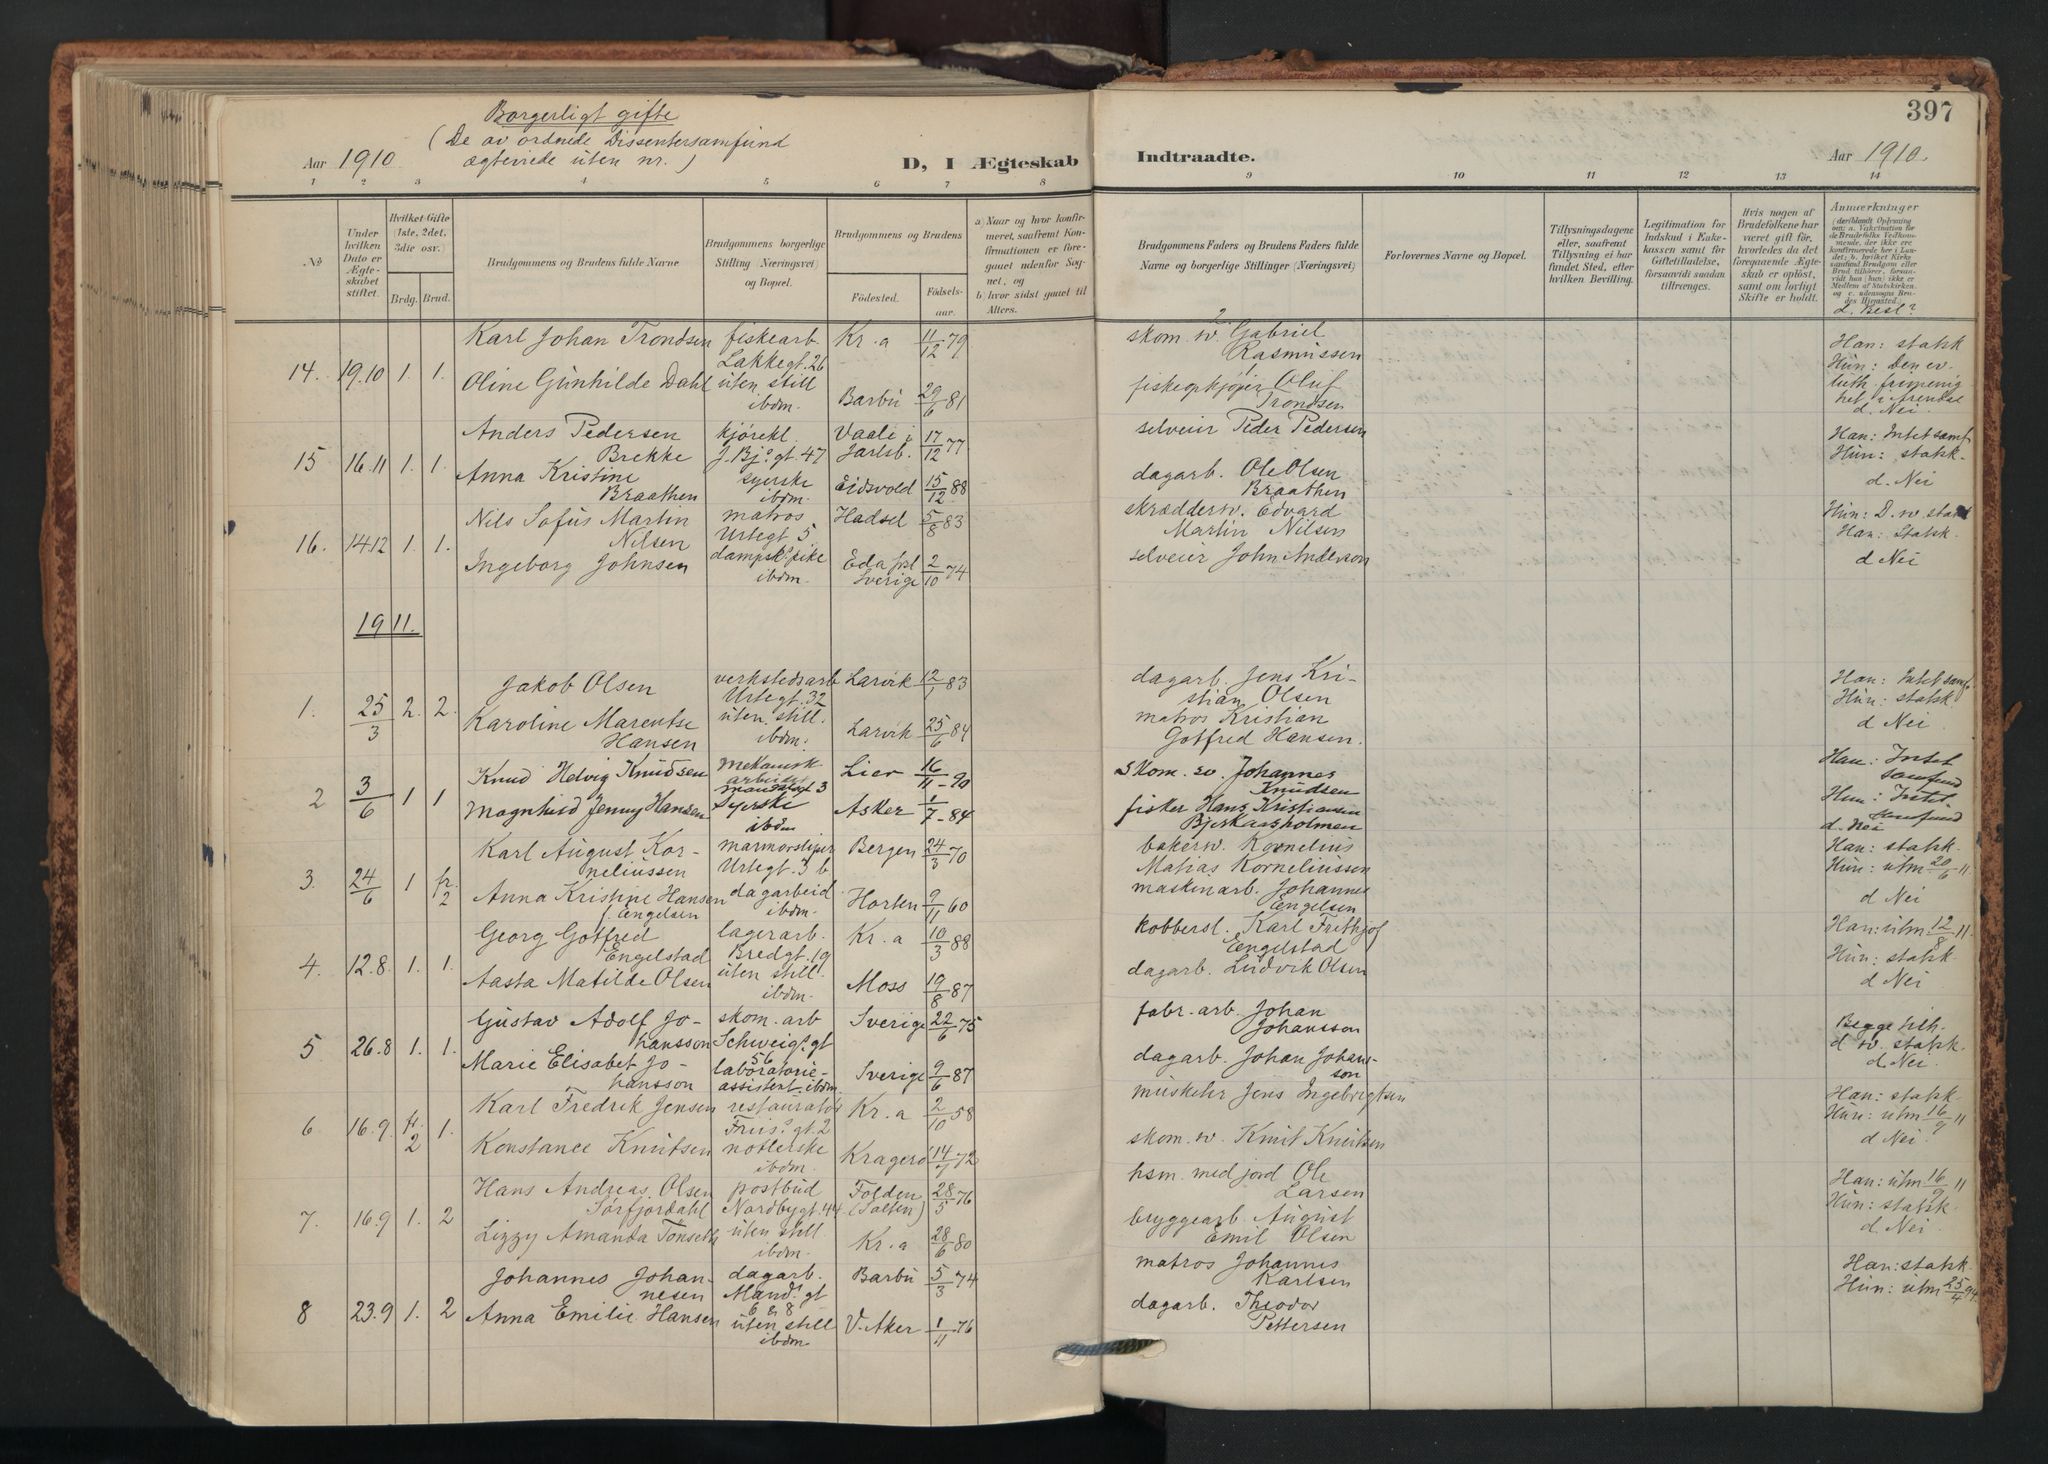 Borgerligt gifte
(De av ordnede Dissentersamfund
ægteviede uten nr.)
Aar 1910
D, I Ægteskab
Indtraadte.
Aar 1910.
397
1 2 3 4 5 6 7 8 9 10 11 12 13 14
No
Under hvilken Dato er Ægteskabet stiftet.
Hvilket Gifte (1ste, 2det, 3die osv.).
Brdg. Brud.
Brudgommens og Brudens fulde Navne
Brudgommens borgerlige Stilling (Næringsvei) og Bopæl.
Brudgommens og Brudens
Fødested.
Fødselsaar.
a) Naar og hvor konfirmeret, saafremt Konfirmationen er foregaaet udenfor Sognet, og
b) hvor sidst gaaet til Alters.
Brudgommens Faders og Brudens Faders fulde Navne og borgerlige Stillinger (Næringsvei)
Forlovernes Navne og Bopæl.
Tillysningsdagene eller, saafremt Tillysning ei har fundet Sted, efter hvilken Bevilling.
Legitimation for Indskud i Enkekassen samt for Giftetilladelse, forsaavidt saadan tiltrænges.
Hvis nogen af Brudefolkene har været gift før, hvorledes da det foregaaende Ægteskab er opløst, samt om lovligt Skifte er holdt.
Anmærkninger
d. Besl?
14. 19.10 1. 1.
Karl Johan Trondsen fiskearb. Kr.a 11/12 79
Lakkegt. 26
Oline Gunhilde Dahl uten still
ibdm. Barbu 29/6 81
skom. sv. Gabriel
Rasmussen
Oluf
Trondsen
Han: statsk
Hun: Den ev.
luth. frimenig
het i Arendal
d. Nei.
15 16.11 1. 1.
Anders Pedersen kjørekl. Vaale i 17/12 77
Brekke J. Bj.s gt. 47 Jarlsb.
Anna Kristine syerske Eidsvold 15/12 88
Braathen ibdm.
selveier Peder Pedersen
dagarb. Ole Olsen
Braathen
Han: Intet samf
Hun: statsk.
d. Nei
16. 14.12 1. 1.
Nils Sofus Martin matros Hadsel 5/8 83
Nilsen Urtegt 5
Ingeborg Johnsen dampsk. pike Eda psl 2/10 74
ibdm. Sverige
skrædderv. Edvard
Martin Nilsen
selveier John Anderson
Han: Statsk.
d Nei
1911.
1. 25/3 2. 2.
Jakob Olsen verkstedsarb Larvik 12/1 83
Urtegt. 32
Karoline Marentse uten still. Larvik 25/6 84
Hansen ibdm.
dagarb. Jens Kri-
stian Olsen
matros Kristian
Gotfred Hansen.
Han: Intet samf.
Hun: statsk.
d Nei
2 3/6 1 1
Knud Helvig Knudsen mekanisk Lier 16/11-90
arbeider
Mandalsgt 3
Magnhild Jenny Hansen Syerske Asker 1/7-84
ibdm
Skom. sv. Johannes
Knudsen
fisker Hans Kristiansen
Bjerkaasholmen
Han: Intet
Samfund
Hun: Intet.
Samfund
d. Nei
3. 24/6 1 fr. 2
Karl August Kor- marmorsliper Bergen 24/3 70
neliussen Urtegt. 3 b
Anna Kristine Hansen dagarbeid Horten 9/11 60
f. Engelsen ibdm.
bakersv. Kornelius
Matias Korneliussen
maskinarb. Johannes
Engelsen
Han: statsk.
Hun: utm 20/6 11.
d Nei
4. 12.8. 1. 1.
Georg Gotfred lagerarb. Kr.a 10/3 88
Engelstad Bredgt. 19
Aasta Matilde Olsen uten still. Moss 19/8 87
ibdm.
kobbersl. Karl Frithjof
Engelstad
dagarb. Ludvik Olsen
Han: utm 12/8 11.
Hun: statsk.
d Nei
5 26.8 1. 1.
Gustav Adolf Jo- skom. arb Sverige 22/6 75
hansson Schweig.s gt
56
Marie Elisabet Jo- laboratorie- Sverige 9/6 87
hansson assistent ibdm.
fabr. arb. Johan
Johansson
dagarb. Johan Johans-
son
Begge tilh.
d sv. statsk.
d. Nei.
6. 16.9. fr. 2 1.
Karl Fredrik Jensen restauratør Kr.a 2/10 58
Friis.s gt. 2
Konstance Knutsen Kragerø 14/1 72
ibdm.
Jens Ingebrigtsen
skom. sv. Knut Knutsen
Han: statsk.
Hun: utm 16/9 11
d Nei
7. 16.9 1. 2
Hans Andreas Olsen postbud Folden 28/5 76
Sørfjordahl Nordbygt. 44 (Salten)
Lizzy Amanda uten still Kr.a 28/6 80
ibdm.
hsm. med jord Ole
Larsen
bryggearb. August
Emil Olsen
Han: utm 16/9 11
Hun: statsk.
d. Nei
8 23.9 1. 2
Johannes Johan- dagarb. Barbu 5/3 74
nesen Mand.s gt
6 & 8
Anna Emilie Hansen uten still V. Aker 1/11 76
ibdm
matros Johannes
Karlsen
dagarb. Theodor
Pettersen
Han: statsk.
Hun: utm 25/4 94.